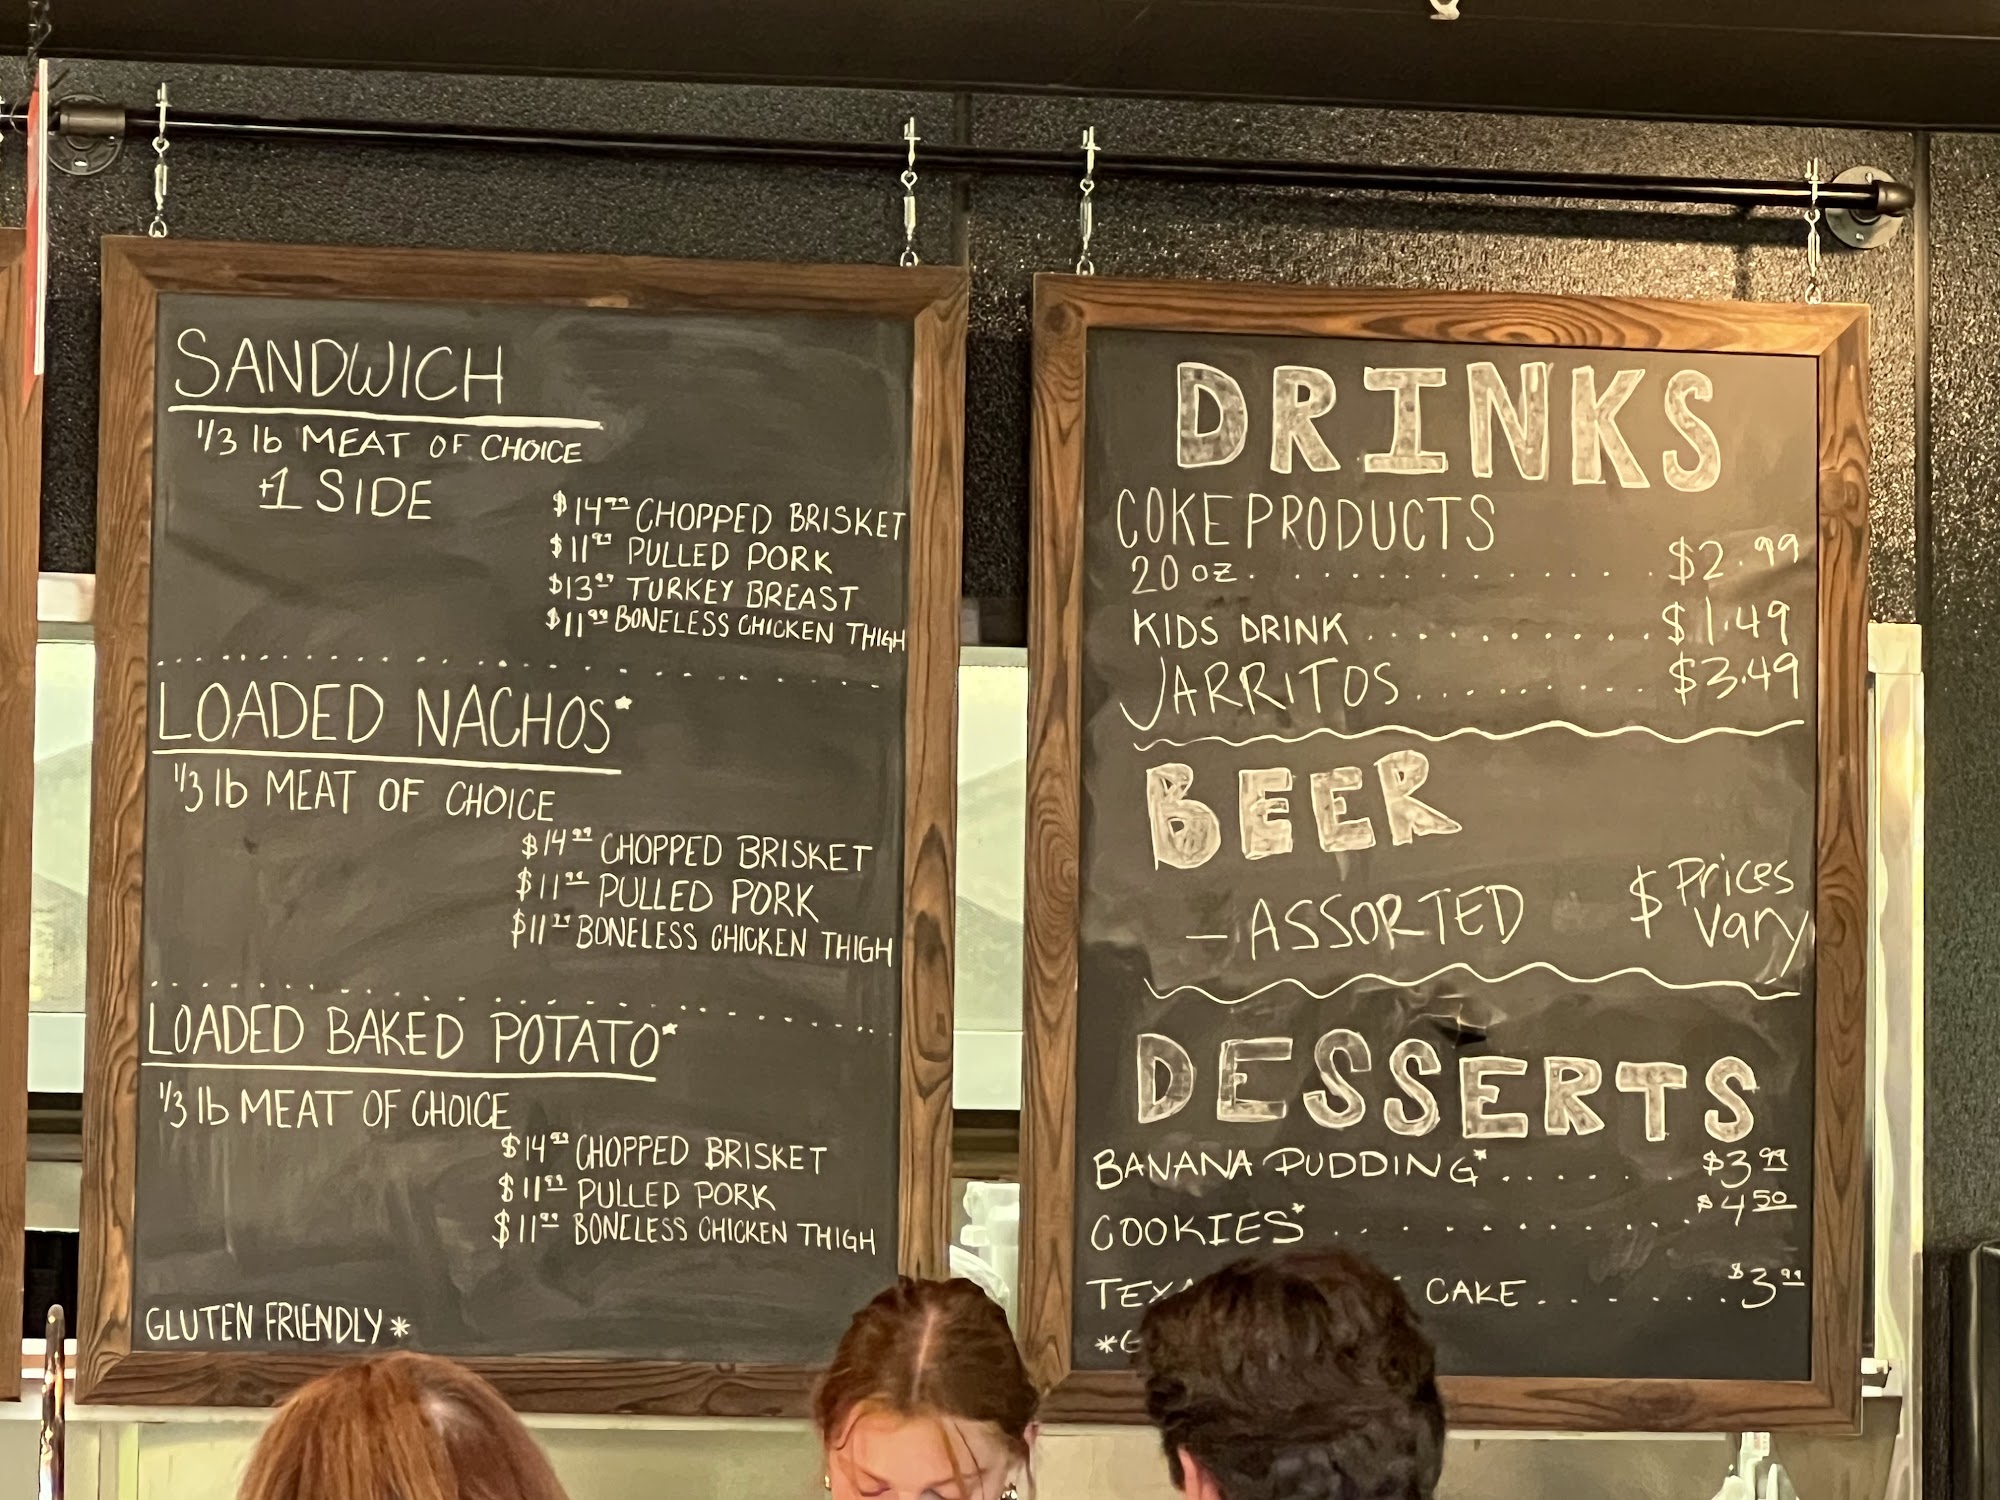 SANDWICH
1/3 lb MEAT OF CHOICE
+1 SIDE
$14.99 CHOPPED BRISKET
$11.99 PULLED PORK
$13.99 TURKEY BREAST
$11.99 BONELESS CHICKEN THIGH
LOADED NACHOS*
1/3 lb MEAT OF CHOICE
$14.99 CHOPPED BRISKET
$11.99 PULLED PORK
$11.99 BONELESS CHICKEN THIGH
LOADED BAKED POTATO*
1/3 lb MEAT OF CHOICE
$14.99 CHOPPED BRISKET
$11.99 PULLED PORK
$11.99 BONELESS CHICKEN THIGH
GLUTEN FRIENDLY*
DRINKS
COKE PRODUCTS
20 oz. . . . . . . . . . . . . $2.99
KIDS DRINK . . . . . . . . . . $1.49
JARRITOS . . . . . . . . . $3.49
BEER
- ASSORTED $ Prices Vary
DESSERTS
BANANA PUDDING* . . . . . . $3.99
COOKIES* . . . . . . . . . . . . $4.50
CAKE . . . . . . . $3.99